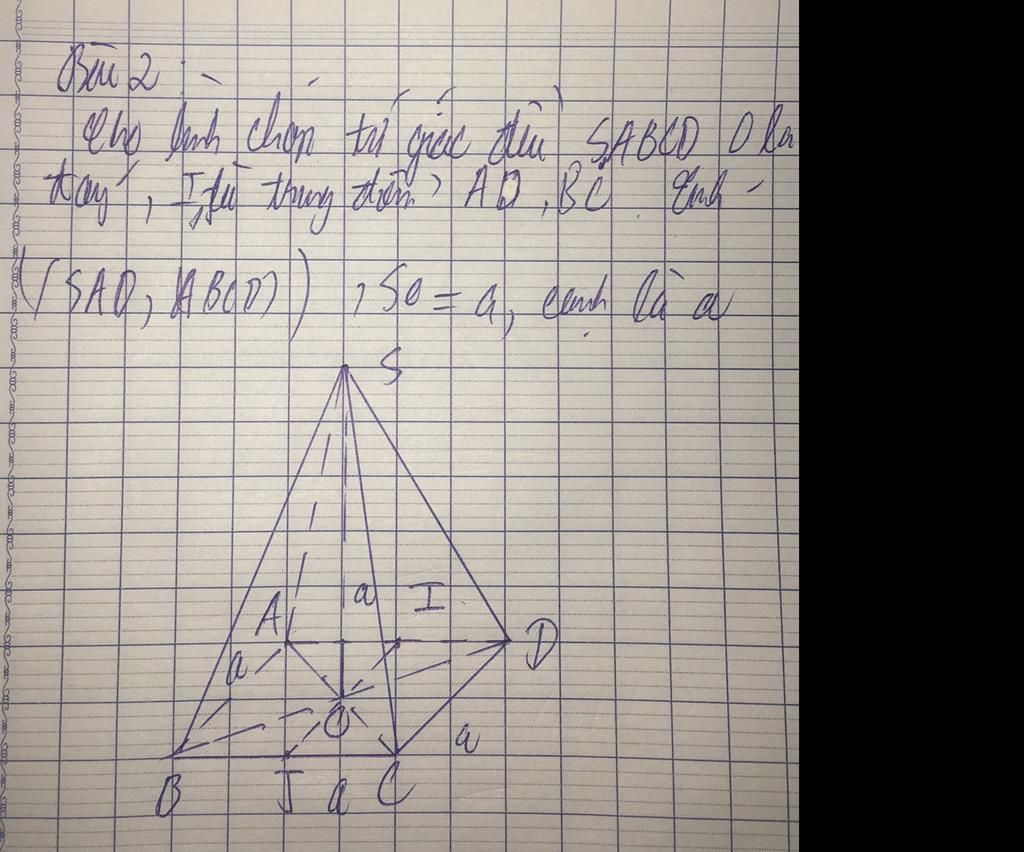 Bài 2 :
Cho hình chóp tứ giác đều SABCD O là
đáy, I, J là trung điểm AD, BC. Tính
((SAD, ABCD)) , SO = a, cạnh là a
S
a I
A D
a
O
a
B J a C